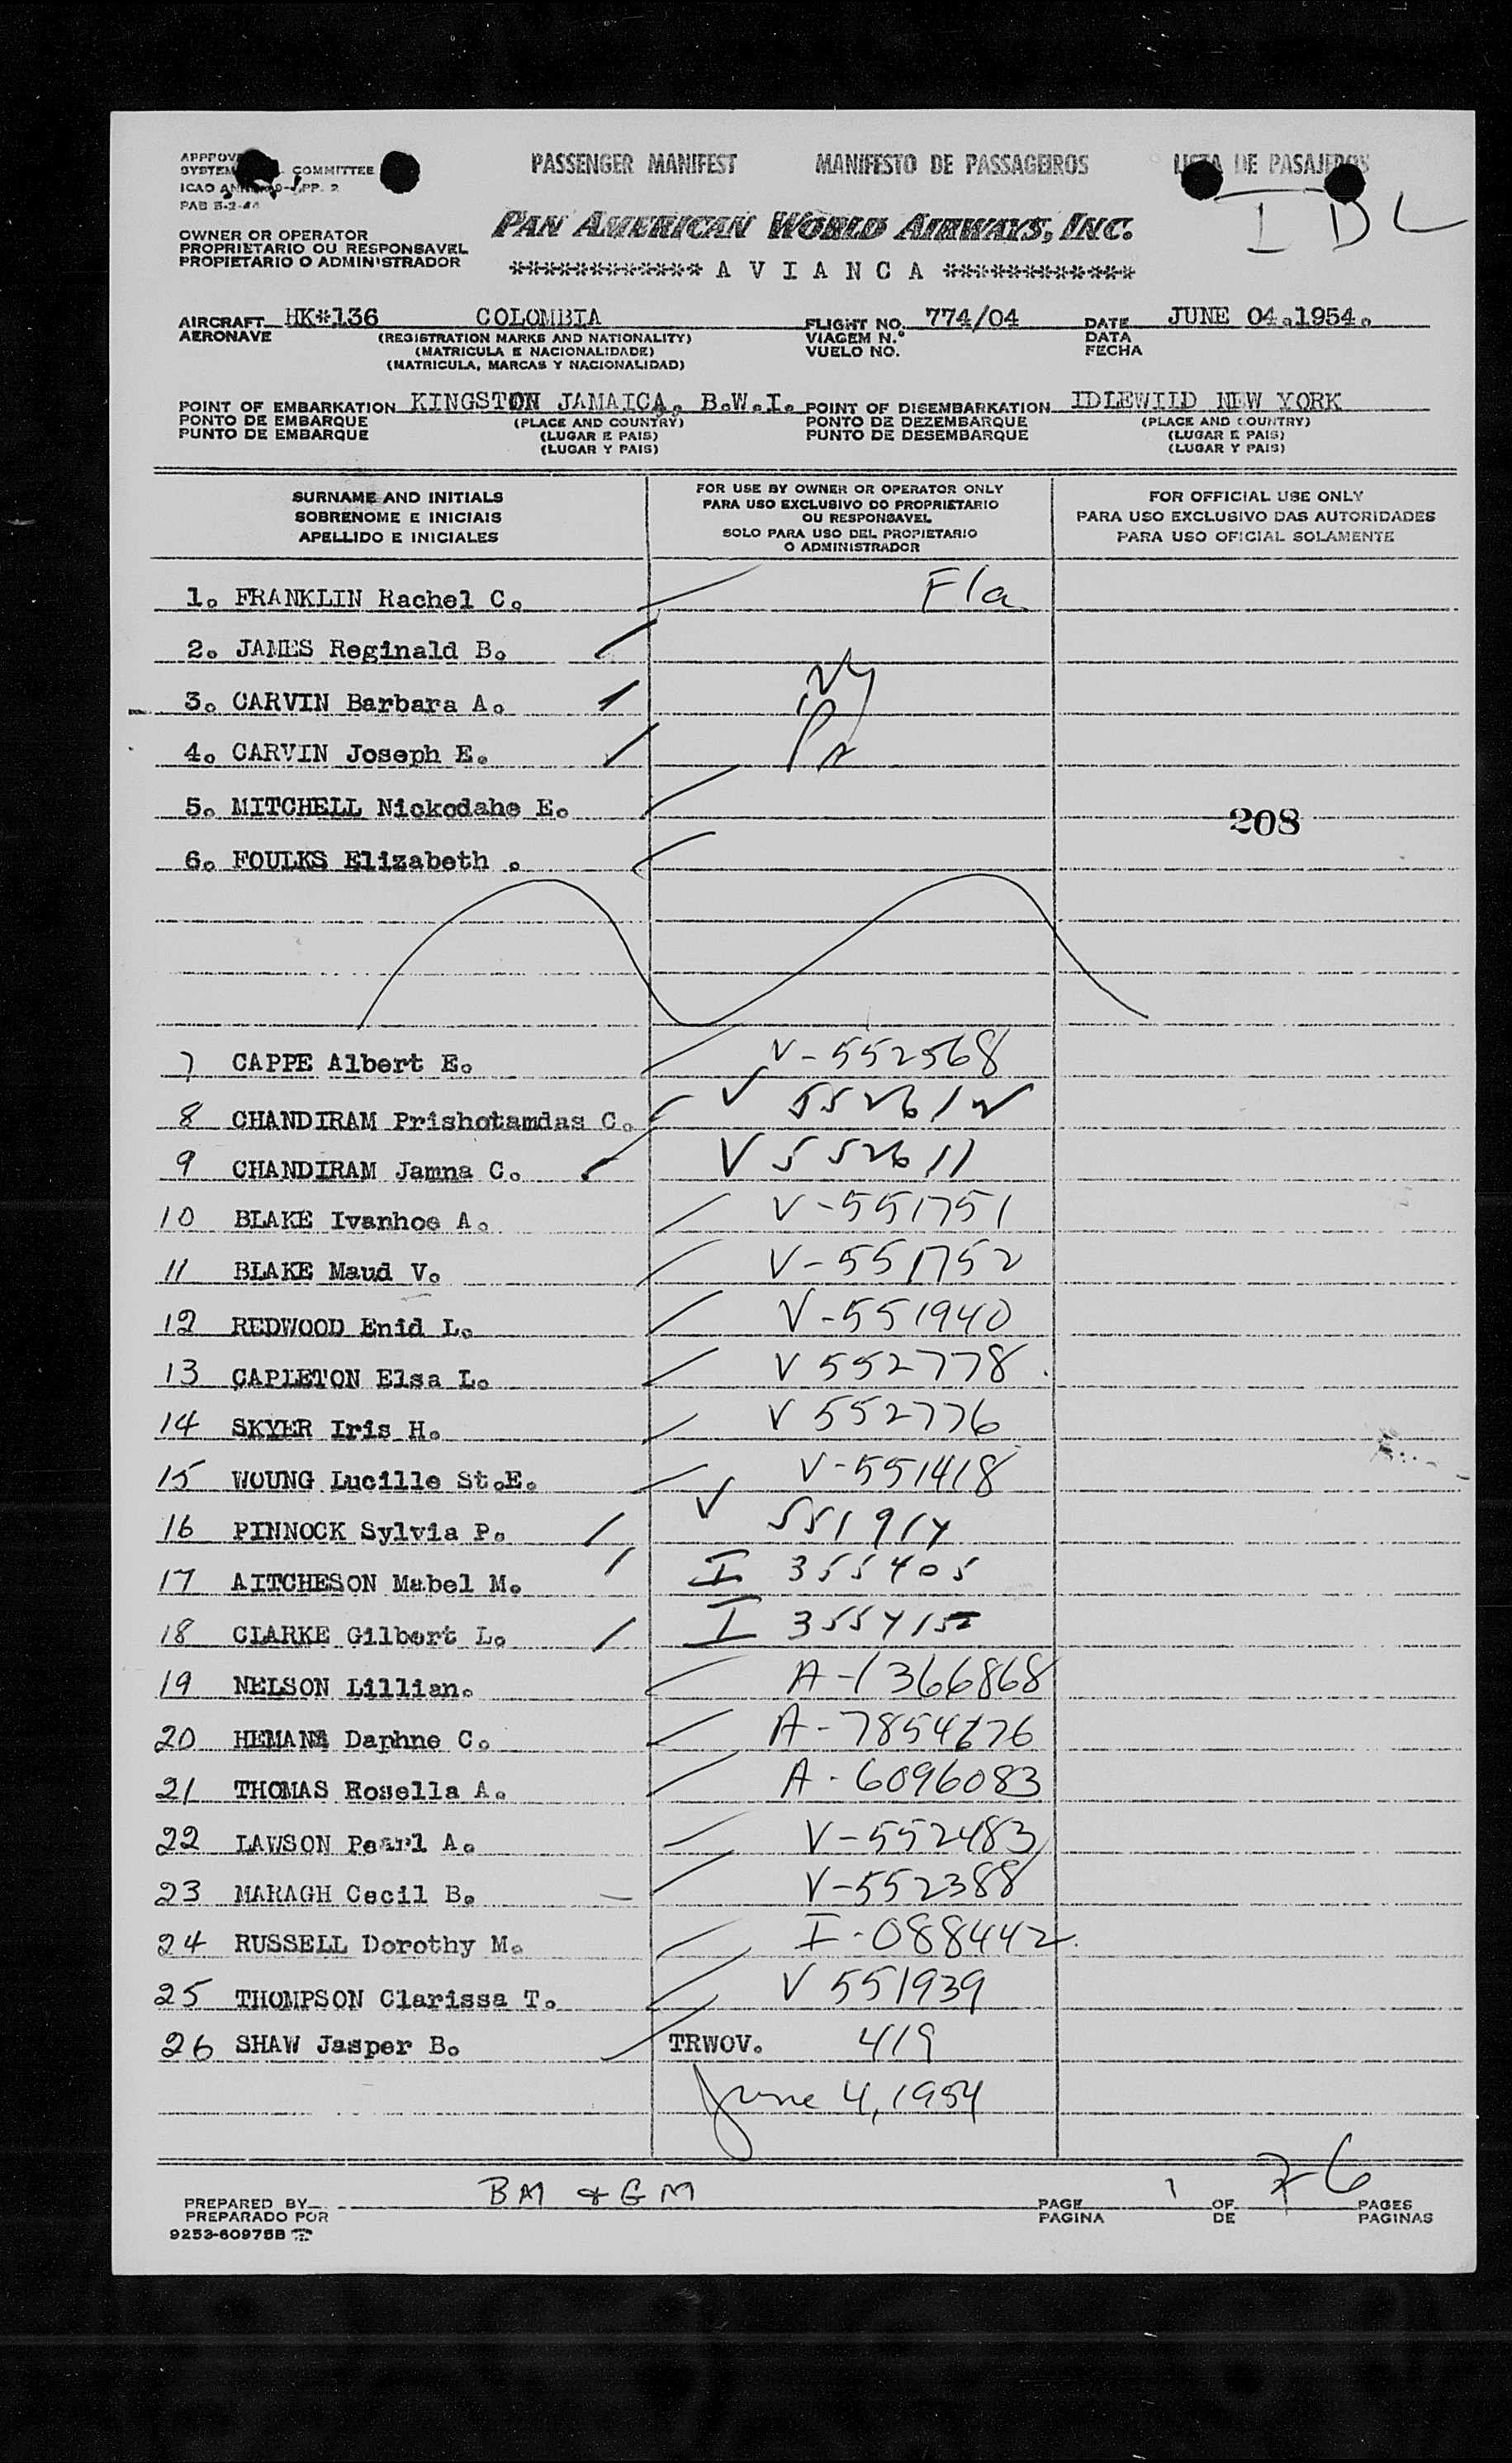 PASSENGER MANIFEST MANIFESTO DE PASSAGEIROS LISTA DE PASAJEROS
COMMITTEE
PAB 5-2-44
I D L
OWNER OR OPERATOR
PROPRIETARIO OU RESPONSAVEL
PROPIETARIO O ADMINISTRADOR
PAN AMERICAN WORLD AIRWAYS, INC.
************ A V I A N C A ************
AIRCRAFT HK#136 COLOMBIA FLIGHT NO. 774/04 DATE JUNE 04.1954.
AERONAVE (REGISTRATION MARKS AND NATIONALITY) VIAGEM N.° DATA
(MATRICULA E NACIONALIDADE) VUELO NO. FECHA
(MATRICULA, MARCAS Y NACIONALIDAD)
POINT OF EMBARKATION KINGSTON JAMAICA, B.W.I. POINT OF DISEMBARKATION IDLEWILD NEW YORK
PONTO DE EMBARQUE (PLACE AND COUNTRY) PONTO DE DEZEMBARQUE (PLACE AND COUNTRY)
PUNTO DE EMBARQUE (LUGAR E PAIS) PUNTO DE DESEMBARQUE (LUGAR E PAIS)
(LUGAR Y PAIS) (LUGAR Y PAIS)
SURNAME AND INITIALS
SOBRENOME E INICIAIS
APELLIDO E INICIALES
FOR USE BY OWNER OR OPERATOR ONLY
PARA USO EXCLUSIVO DO PROPRIETARIO
OU RESPONSAVEL
SOLO PARA USO DEL PROPIETARIO
O ADMINISTRADOR
FOR OFFICIAL USE ONLY
PARA USO EXCLUSIVO DAS AUTORIDADES
PARA USO OFICIAL SOLAMENTE
1. FRANKLIN Rachel C. Fla
2. JAMES Reginald B.
3. CARVIN Barbara A. Ny
4. CARVIN Joseph E. Pa
5. MITCHELL Nickodahe E. 208
6. FOULKS Elizabeth .
7 CAPPE Albert E. V-552568
8 CHANDIRAM Prishotamdas C. V 552612
9 CHANDIRAM Jamna C. V 552611
10 BLAKE Ivanhoe A. V-551751
11 BLAKE Maud V. V-551752
12 REDWOOD Enid L. V-551940
13 CAPLETON Elsa L. V 552778
14 SKYER Iris H. V 552776
15 WOUNG Lucille St.E. V-551418
16 PINNOCK Sylvia P. V 551914
17 AITCHESON Mabel M. I 355405
18 CLARKE Gilbert L. I
19 NELSON Lillian. A-1366868
20 HEMANS Daphne C.
21 THOMAS Rosella A. A-6096083
22 LAWSON Pearl A. V-552483
23 MARAGH Cecil B. V-552388
24 RUSSELL Dorothy M. I-088442
25 THOMPSON Clarissa T. V 551939
26 SHAW Jasper B. TRWOV. 419
June 4, 1954
PREPARED BY BM & GM PAGE 1 OF 26 PAGES
PREPARADO POR PAGINA DE PAGINAS
9253-60975B